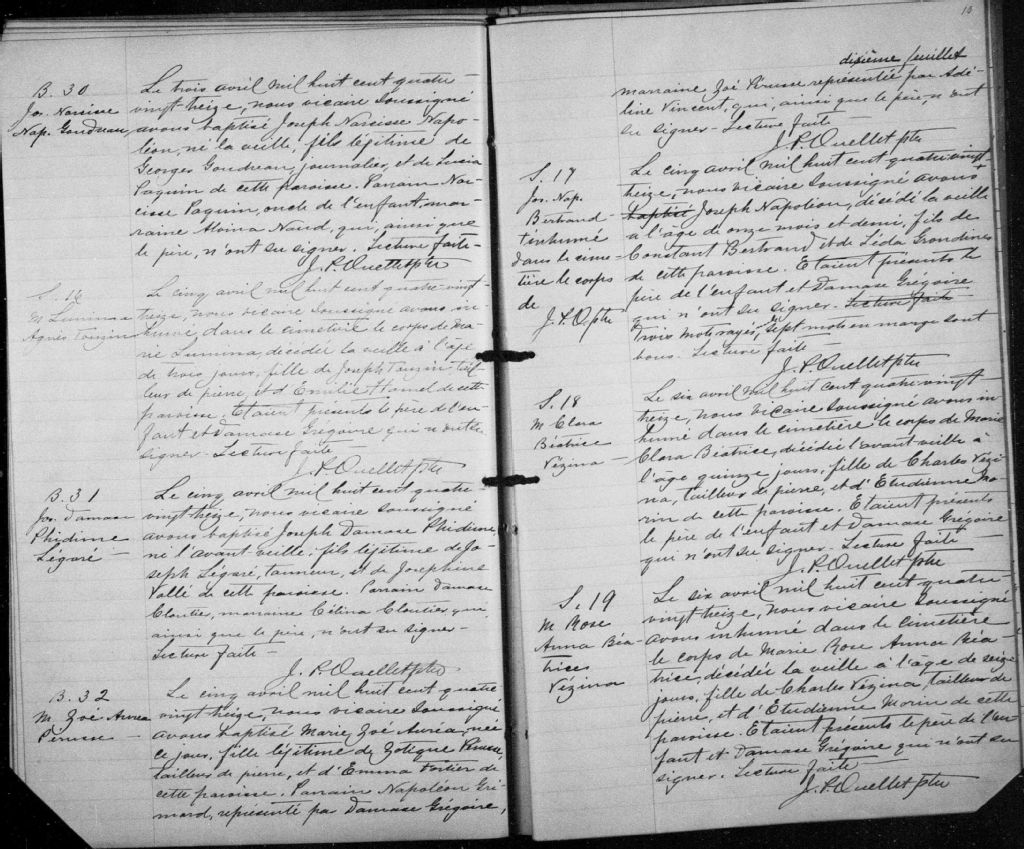 B. 30
Jos. Narcisse
Nap. Goudreau
Le trois avril mil huit cent quatre-
vingt treize, nous vicaire soussigné
avons baptisé Joseph Narcisse Napo-
léon, né la veille, fils légitime de
Georges Goudreau, journalier, et de Lucia
Paquin de cette paroisse. Parrain Nar-
cisse Paquin, oncle de l'enfant, mar-
raine Alvina Naud, qui, ainsi que
le père, n'ont su signer. Lecture faite-
J. P. Ouellet ptre
S. 16
M. Lumina
Agnès Touzin
Le cinq avril mil huit cent quatre-vingt
treize, nous vicaire soussigné avons in-
humé, dans le cimetière le corps de Ma-
rie Lumina, décédée la veille à l'âge
de trois jours, fille de Joseph Touzin, tail-
leur de pierre, et d'Emilie Hamel de cette
paroisse. Etaient présents le père de l'en-
fant et Damase Grégoire qui n'ont su
signer- Lecture faite
J. P. Ouellet ptre
B. 31
Jos. Damase
Phidime
Légaré-
Le cinq avril mil huit cent quatre
vingt treize, nous vicaire soussigné
avons baptisé Joseph Damase Phidime,
né l'avant veille, fils légitime de Jo-
seph Légaré, tanneur, et de Josephine
Vallé de cette paroisse. Parrain Damase
Cloutier, marraine Célina Cloutier qui
ainsi que le père, n'ont su signer-
Lecture faite-
J. P. Ouellet ptre
B. 32
M. Zoé Auréa
Perusse-
Le cinq avril mil huit cent quatre
vingt treize, nous vicaire soussigné
avons baptisé Marie, Zoé Auréa, née
ce jour, fille légitime de Zotique Perusse,
tailleur de pierre, et d'Emma Fortier de
cette paroisse. Parrain Napoléon Gri-
mard, représenté par Damase Grégoire,
10
dixième feuillet
marraine Zoé Perusse représentée par Adé-
line Vincent, qui, ainsi que le père, n'ont
su signer- Lecture faite
J. P. Ouellet ptre
S. 17
Jos. Nap.
Bertrand-
+ inhumé
dans le cime-
tière le corps
de
J. P. O. ptre
Le cinq avril mil huit cent quatre-vingt
treize, nous vicaire soussigné avons
baptisé Joseph Napoléon, décédé la veille
à l'âge de onze mois et demi, fils de
Constant Bertrand et de Léda Grondines
de cette paroisse. Etaient présents le
père de l'enfant et Damase Grégoire
qui n'ont su signer. Lecture faite
Trois mots rayés, sept mots en marge sont
bons. Lecture faite-
J. P. Ouellet ptre
S. 18
M. Clara
Béatrice
Vézina-
Le six avril mil huit cent quatre-vingt
treize, nous vicaire soussigné avons in-
humé dans le cimetière le corps de Marie
Clara Béatrice, décédée l'avant veille à
l'âge quinze jours, fille de Charles Vézi-
na, tailleur de pierre, et d'Etudienne Mo-
rin de cette paroisse. Etaient présents
le père de l'enfant et Damase Grégoire
qui n'ont su signer. Lecture faite-
J. P. Ouellet ptre
S. 19
M. Rose
Anna Béa-
trice
Vézina
Le six avril mil huit cent quatre-
vingt treize, nous vicaire soussigné
avons inhumé dans le cimetière
le corps de Marie Rose Anna Béa-
trice, décédée la veille à l'âge de seize
jours, fille de Charles Vézina, tailleur de
pierre, et d'Etudienne Morin de cette
paroisse. Etaient présents le père de l'en-
fant et Damase Grégoire qui n'ont su
signer. Lecture faite-
J. P. Ouellet ptre